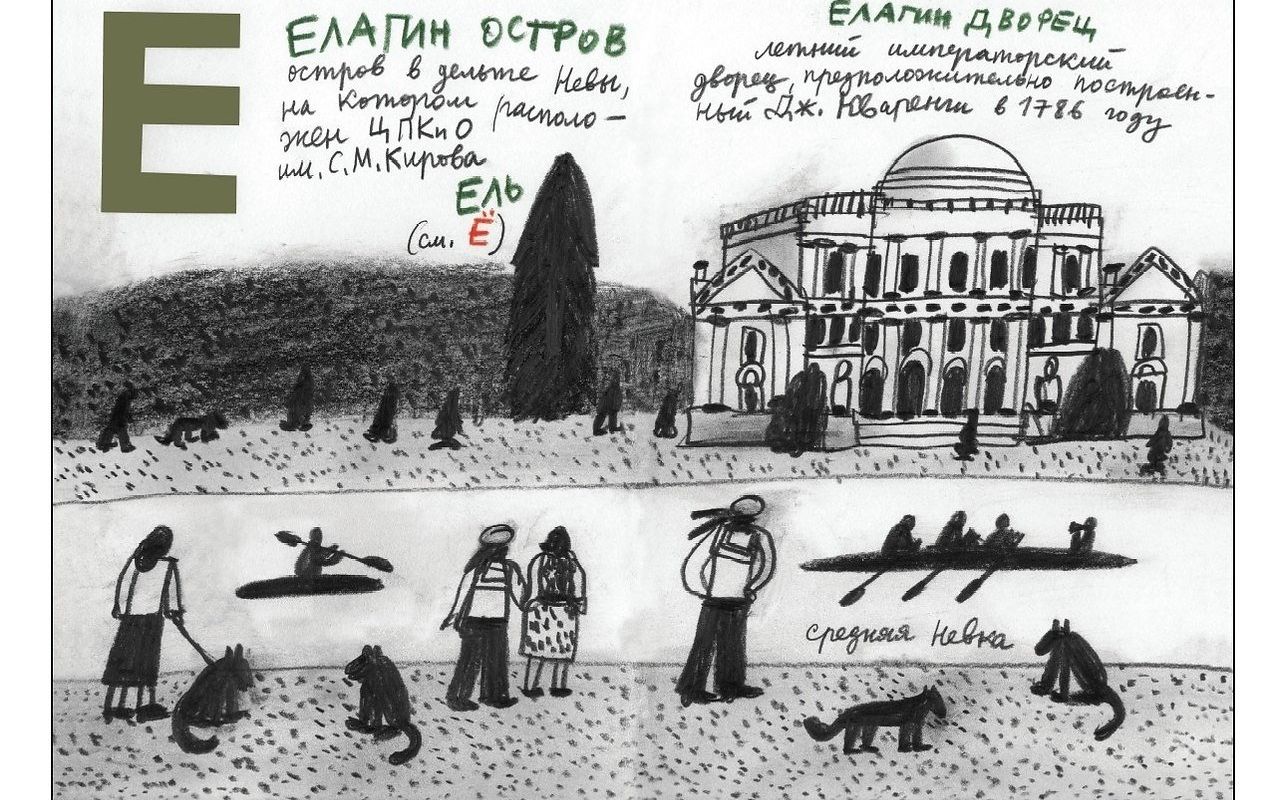 Е
ЕЛАГИН ОСТРОВ
остров в дельте Невы,
на котором располо–
жен ЦПКиО
им. С.М. Кирова
ЕЛЬ
(см. Ё)
ЕЛАГИН ДВОРЕЦ
летний императорский
дворец, предположительно построен-
ный Дж. Кваренги в 1786 году
средняя Невка